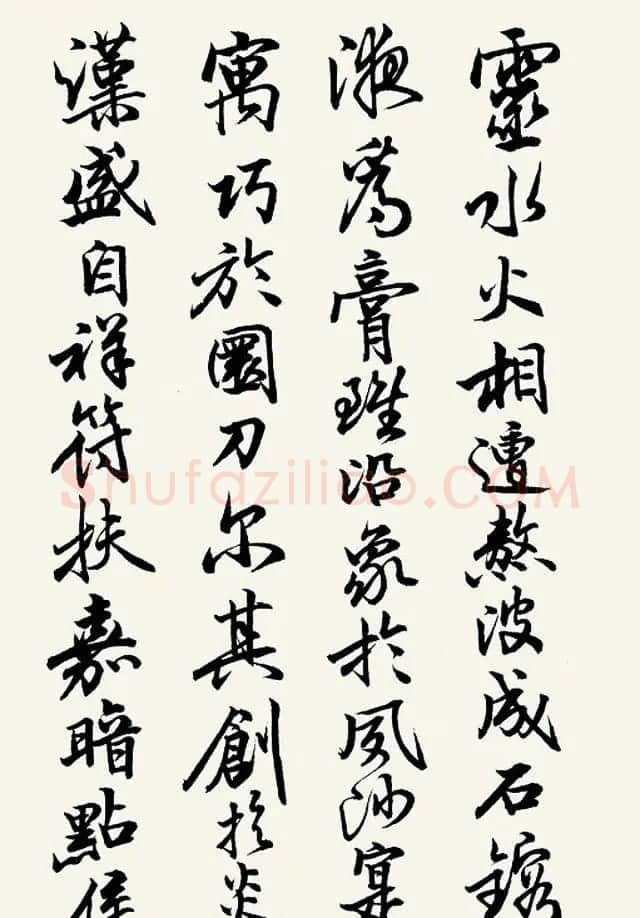 靈水火相遭熬波成石鎔
液為膏琟沿象於風沙寔
寓巧於圜刀尔其創於炎
漢盛自祥符扶嘉暗點侯
Shufaziliao.COM